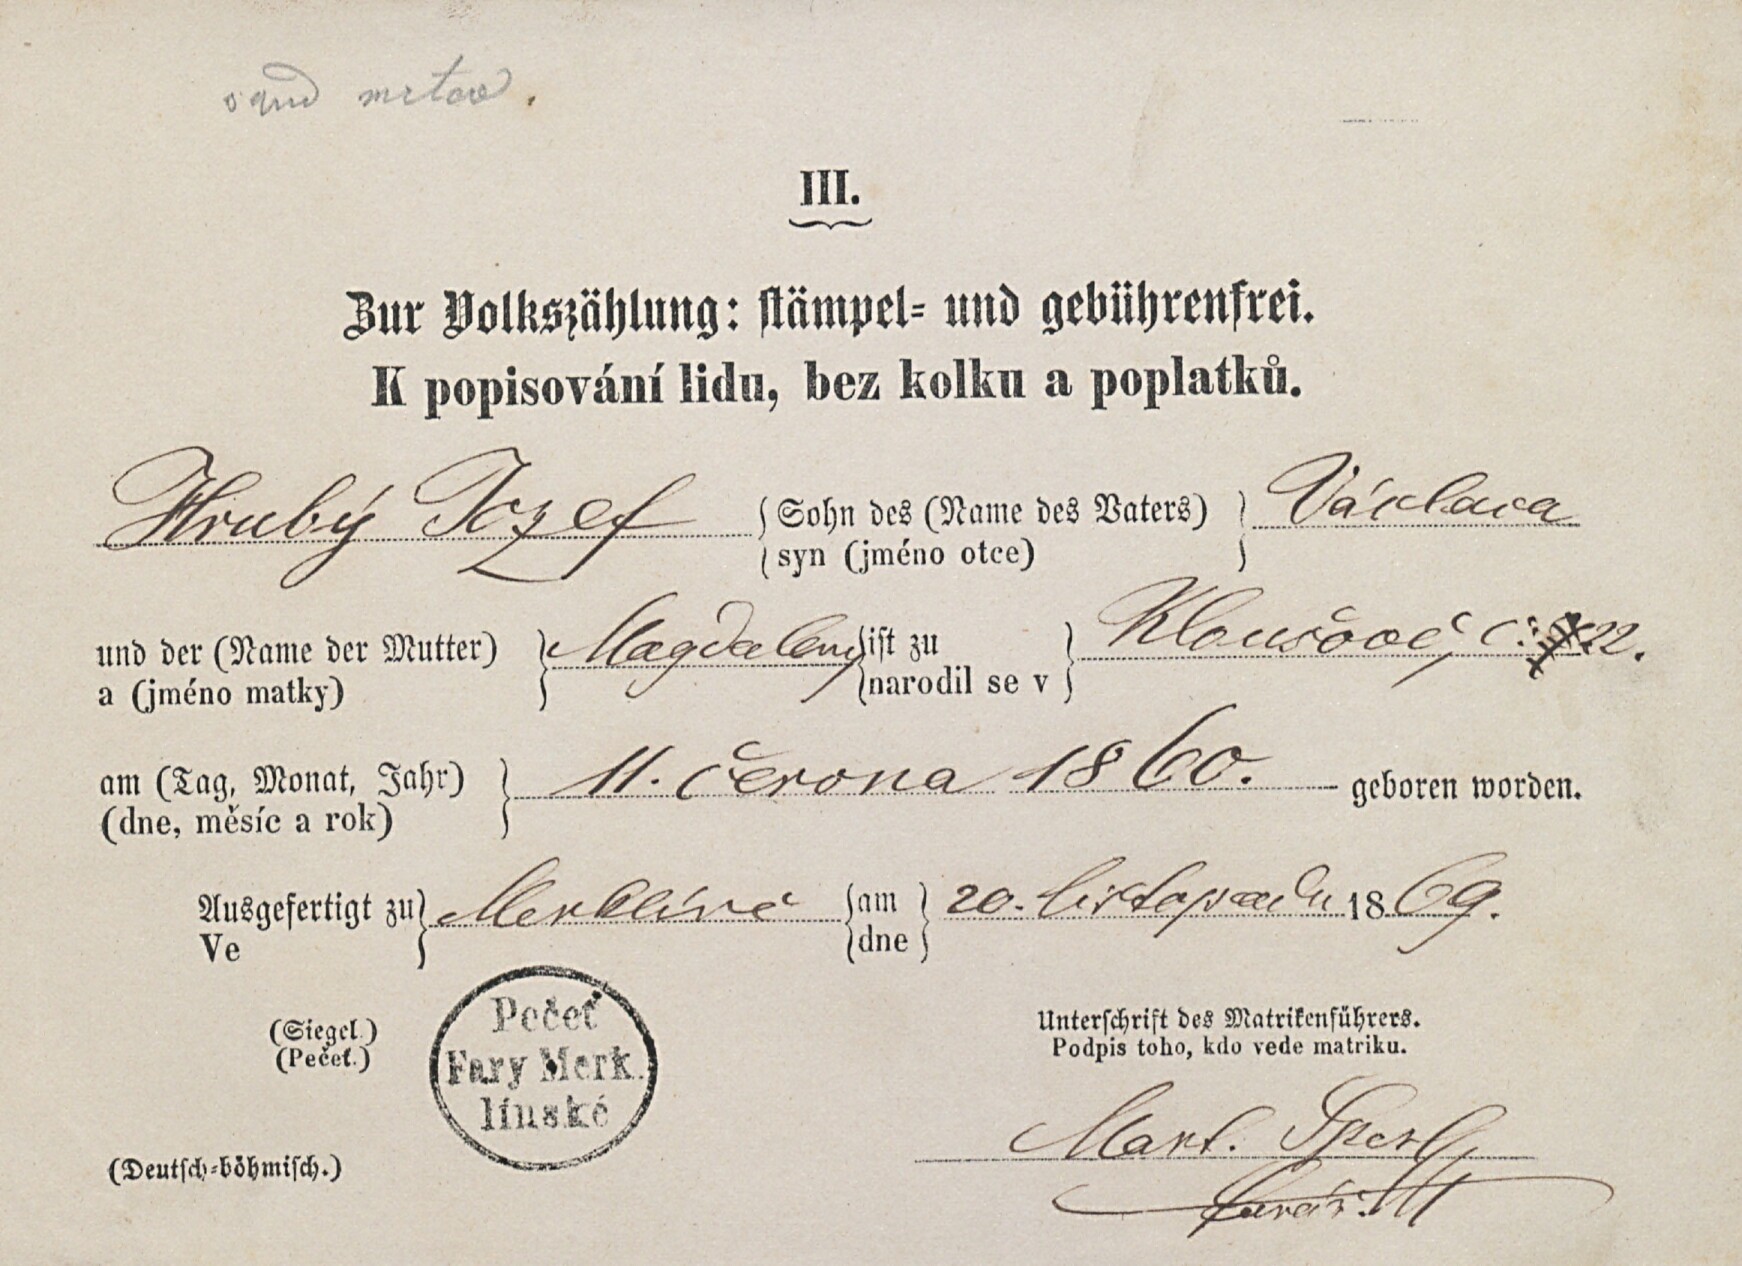 III.
Zur Volkszählung: stämpel- und gebührenfrei.
K popisování lidu, bez kolku a poplatků.
Hrubý Jozef { Sohn des (Name des Vaters) } Václava
syn (jméno otce)
und der (Name der Mutter) } Magdaleny { ist zu } Kloušově, č: 22.
a (jméno matky) narodil se v
am (Tag, Monat, Jahr) } 11. června 1860. geboren worden.
(dne, měsíc a rok)
Ausgefertigt zu } Merklíně { am } 20. listopadu 1869.
Ve dne
(Siegel.)
(Pečeť.)
Pečeť
Fary Merk.
línské
Unterschrift des Matrikenführers.
Podpis toho, kdo vede matriku.
Mart.
farář
(Deutsch-böhmisch.)